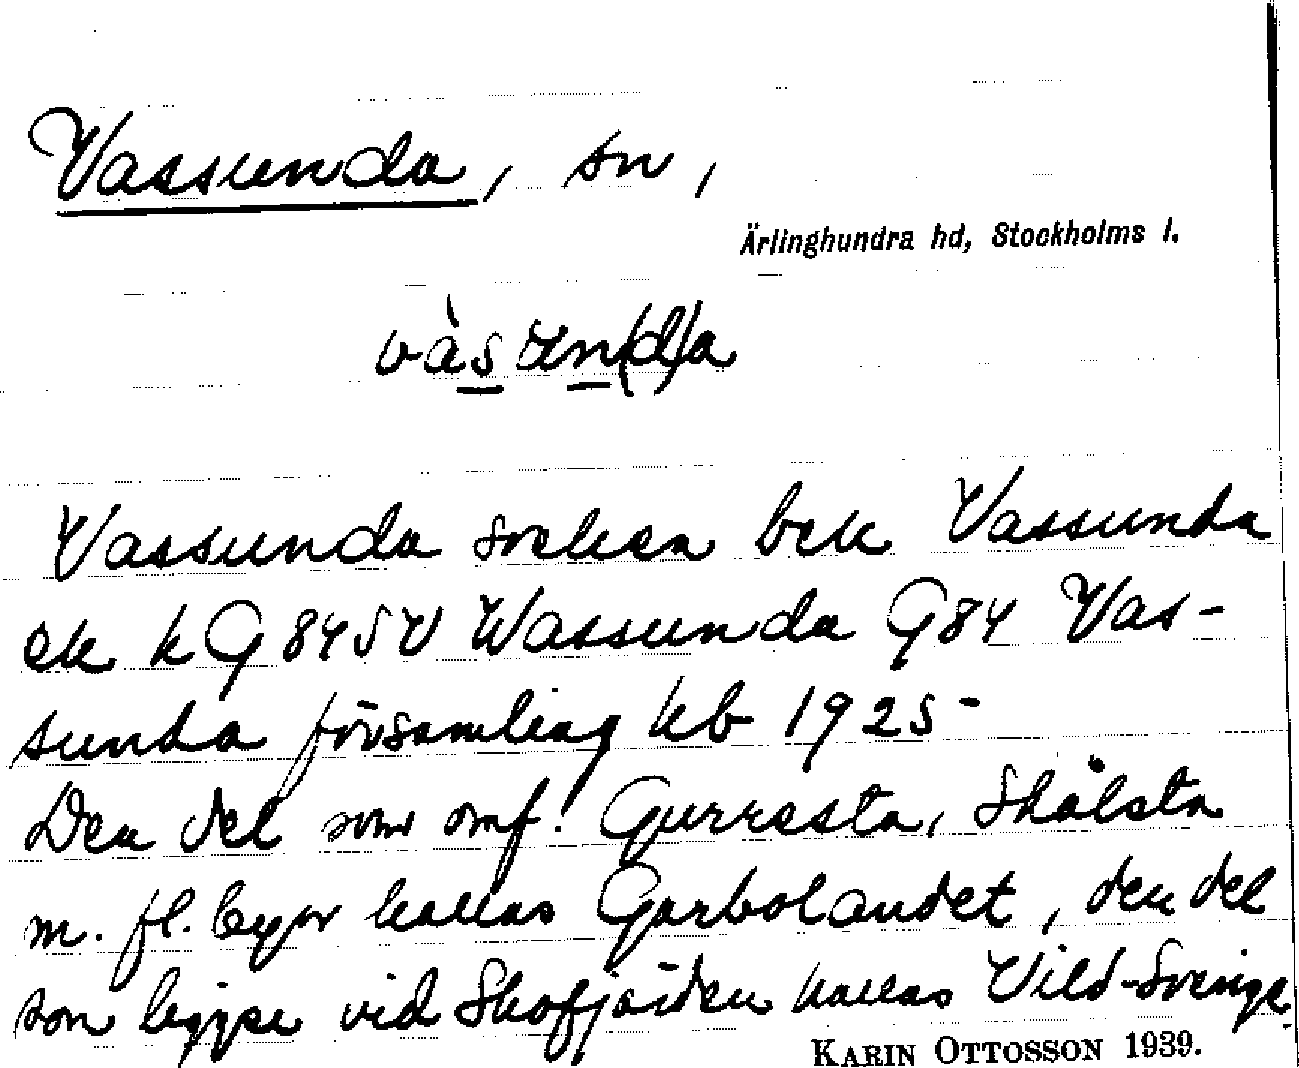 Vassunda, sn,
Ärlinghundra hd, Stockholms l.
vàsun(d)a
Vassunda socken bek Vassunda
ek k G 845V Wassunda G84 Vas-
sunda församling kb 1925-
Den del som omf. Gurresta, Skålsta
m. fl. byar kallas Garbolandet, den del
som ligger vid Skofjärden kallas Vild-Sverige.
KARIN OTTOSSON 1939.